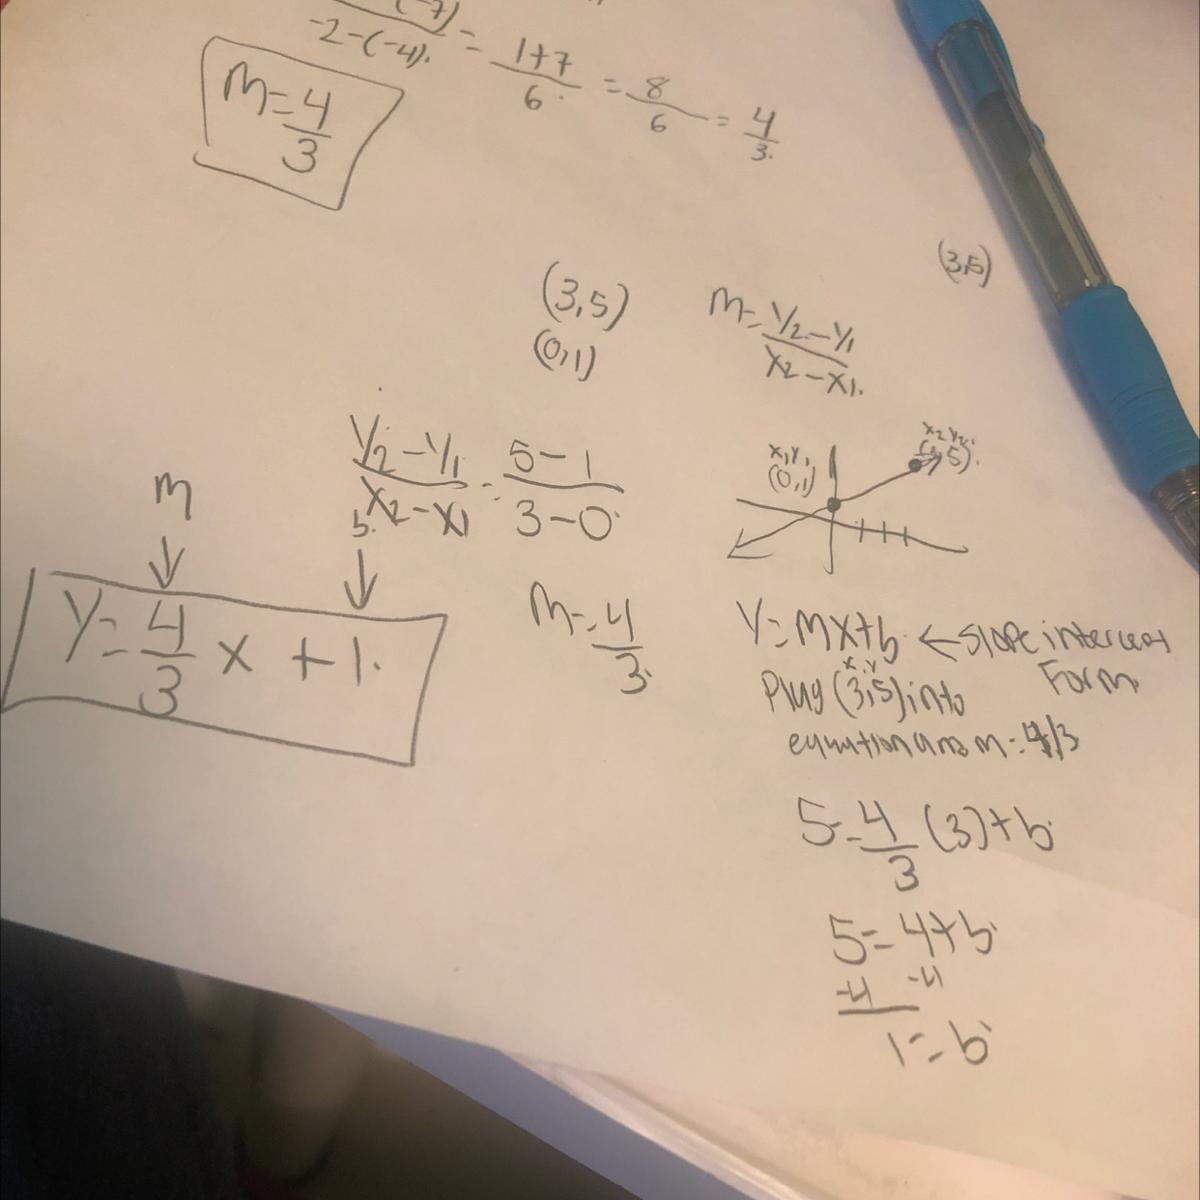 -7)
-2-(-4). = 1+7/6 = 8/6 = 4/3.
m=4/3
(3,5)
(3,5)
(0,1)
m= y2-y1/x2-x1.
y2-y1/x2-x1 = 5-1/3-0
x1y1
(0,1)
x2y2.
5).
m
b.
y=4/3 x +1.
m=4/3.
y=mx+b. ← Slope intercept
Form
x,y
Plug (3,5) into
equation and m=4/3
5=4/3 (3)+b.
5=4+b
-4 -4
1=b